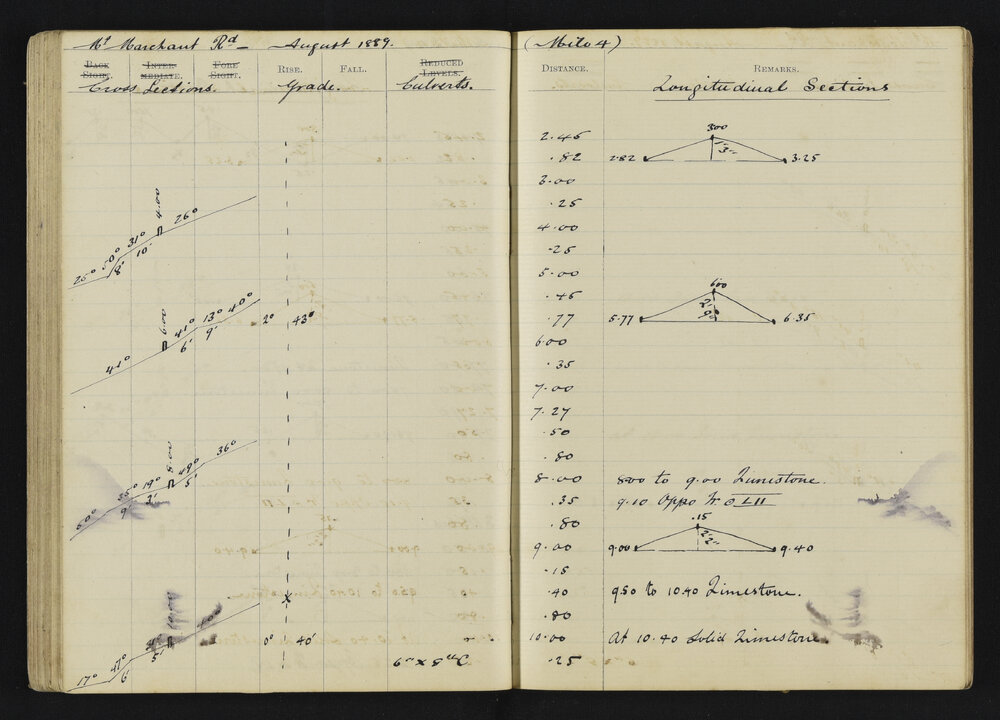 Mt Marchant Rd – August 1889. (Mile 4)
BACK SIGHT. INTER-MEDIATE. FORE SIGHT. RISE. FALL. REDUCED LEVELS. DISTANCE. REMARKS.
Cross Sections. Grade. Culverts. Longitudinal Sections
2.45
300
.82 2.82 1' 3" 3.25
3.00
.25
4.00 26° 4.00
31° .25
25° 50° 8' 10' 5.00
600
.45 2'
6.00 41° 13° 40° 2° 43' .77 5.77 6.35
6' 9' 6.00
41° .35
7.00
7.27
.50
8.00 49° 36° .80
35° 19° 5' 8.00 800 to 9.00 Limestone.
60° 9' 3' .35 9.10 Oppo Tr. LII
.80 .15
9.00 9.00 2' 2" 9.40
.15
.40 9.50 to 10.40 Limestone.
10.00 40° .80
0° 40' 10.00 At 10.40 Solid Limestone
47° 5' .25
17° 6'